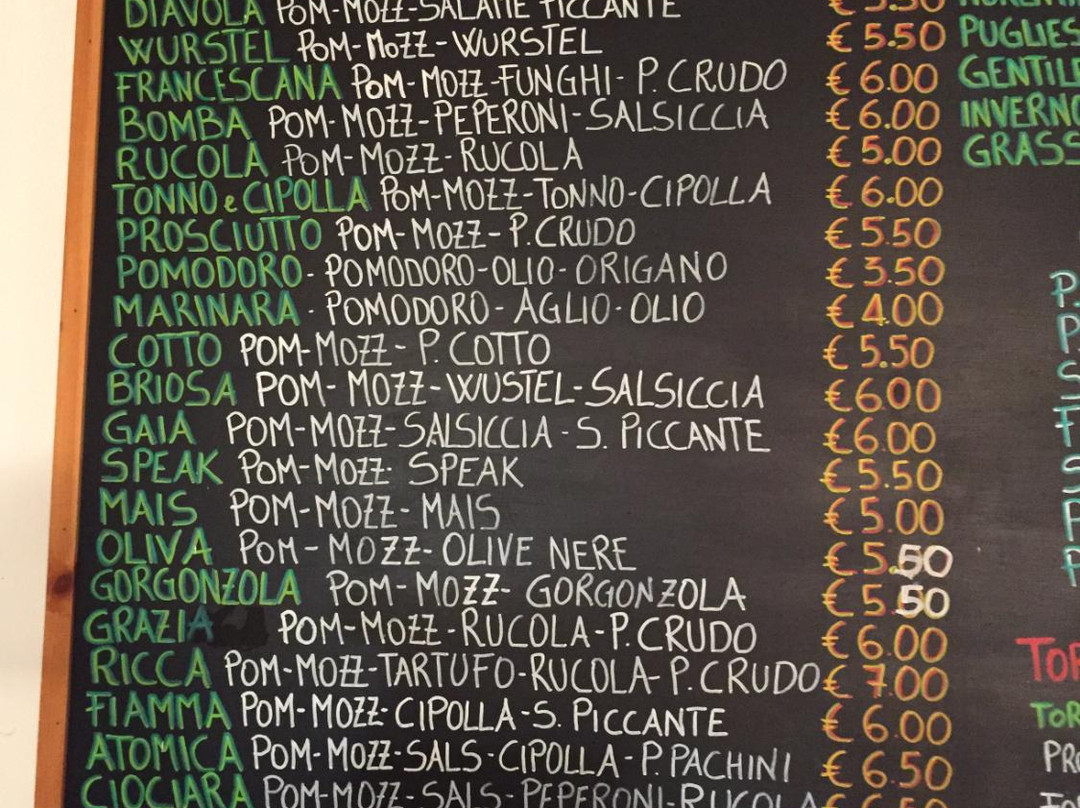 DIAVOLA POM-MOZZ-SALAME PICCANTE € 5.50
WURSTEL POM-MOZZ-WURSTEL € 5.50
FRANCESCANA POM-MOZZ-FUNGHI-P.CRUDO € 6.00
BOMBA POM-MOZZ-PEPERONI-SALSICCIA € 6.00
RUCOLA POM-MOZZ-RUCOLA € 5.00
TONNO e CIPOLLA POM-MOZZ-TONNO-CIPOLLA € 6.00
PROSCIUTTO POM-MOZZ-P.CRUDO € 5.50
POMODORO-POMODORO-OLIO-ORIGANO € 3.50
MARINARA-POMODORO-AGLIO-OLIO € 4.00
COTTO POM-MOZZ-P.COTTO € 5.50
BRIOSA POM-MOZZ-WUSTEL-SALSICCIA €6.00
GAIA POM-MOZZ-SALSICCIA-S. PICCANTE €6.00
SPEAK POM-MOZZ-SPEAK € 5.50
MAIS POM-MOZZ-MAIS € 5.00
OLIVA POM-MOZZ-OLIVE NERE € 5.50
GORGONZOLA POM-MOZZ-GORGONZOLA € 5.50
GRAZIA POM-MOZZ-RUCOLA-P.CRUDO € 6.00
RICCA POM-MOZZ-TARTUFO-RUCOLA-P.CRUDO € 7.00
FIAMMA POM-MOZZ-CIPOLLA-S. PICCANTE € 6.00
ATOMICA POM-MOZZ-SALS-CIPOLLA-P.PACHINI € 6.50
CIOCIARA POM-MOZZ-SALS-PEPERONI-RUCOLA
PUGLIES
GENTILE
INVERNO
GRASS
P.
P
S
F
S
P
P
TOR
TOR
PRO